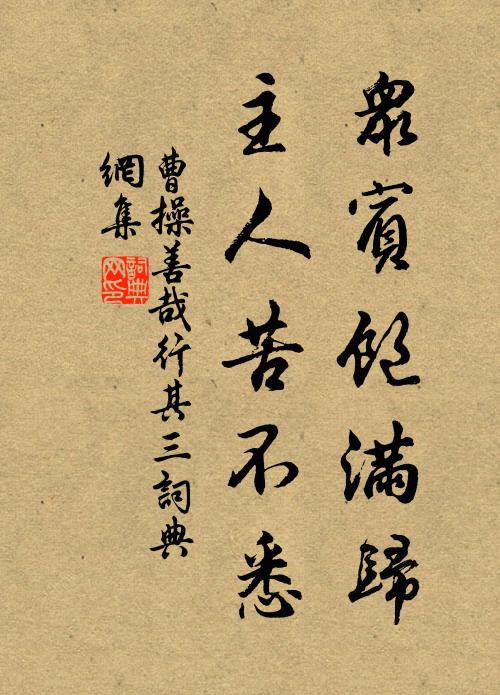 眾賓飽滿歸
主人苦不悉
曹操善哉行其三詞典
網集
詞典
网印